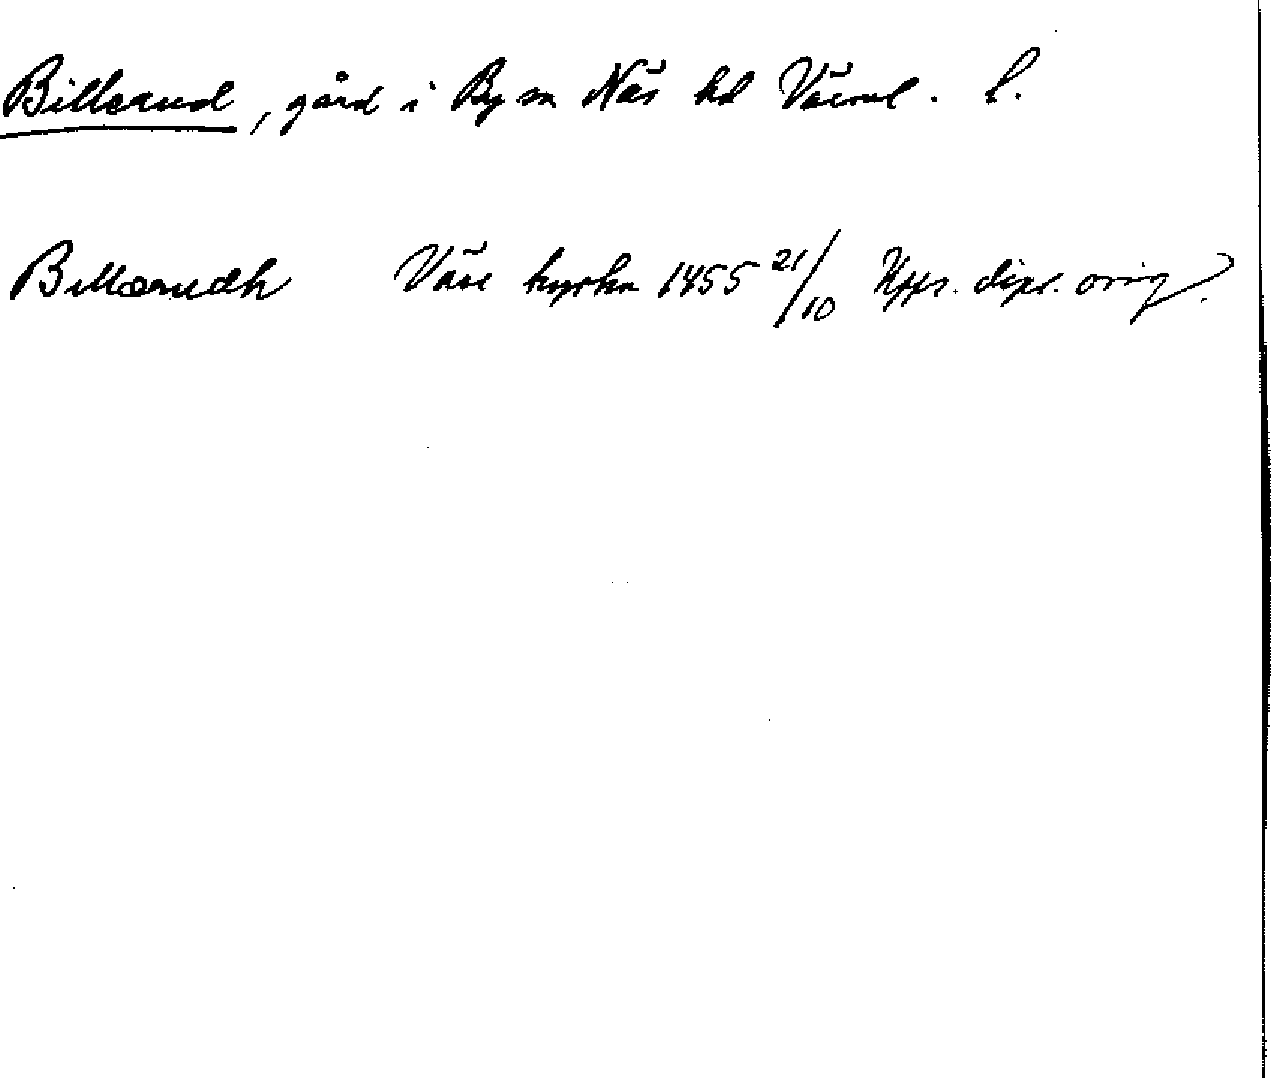 Billerud, gård i By sn Näs hd Värml. l.
Billærudh Väse kyrka 1455 21/10 Upps. dipl. orig.